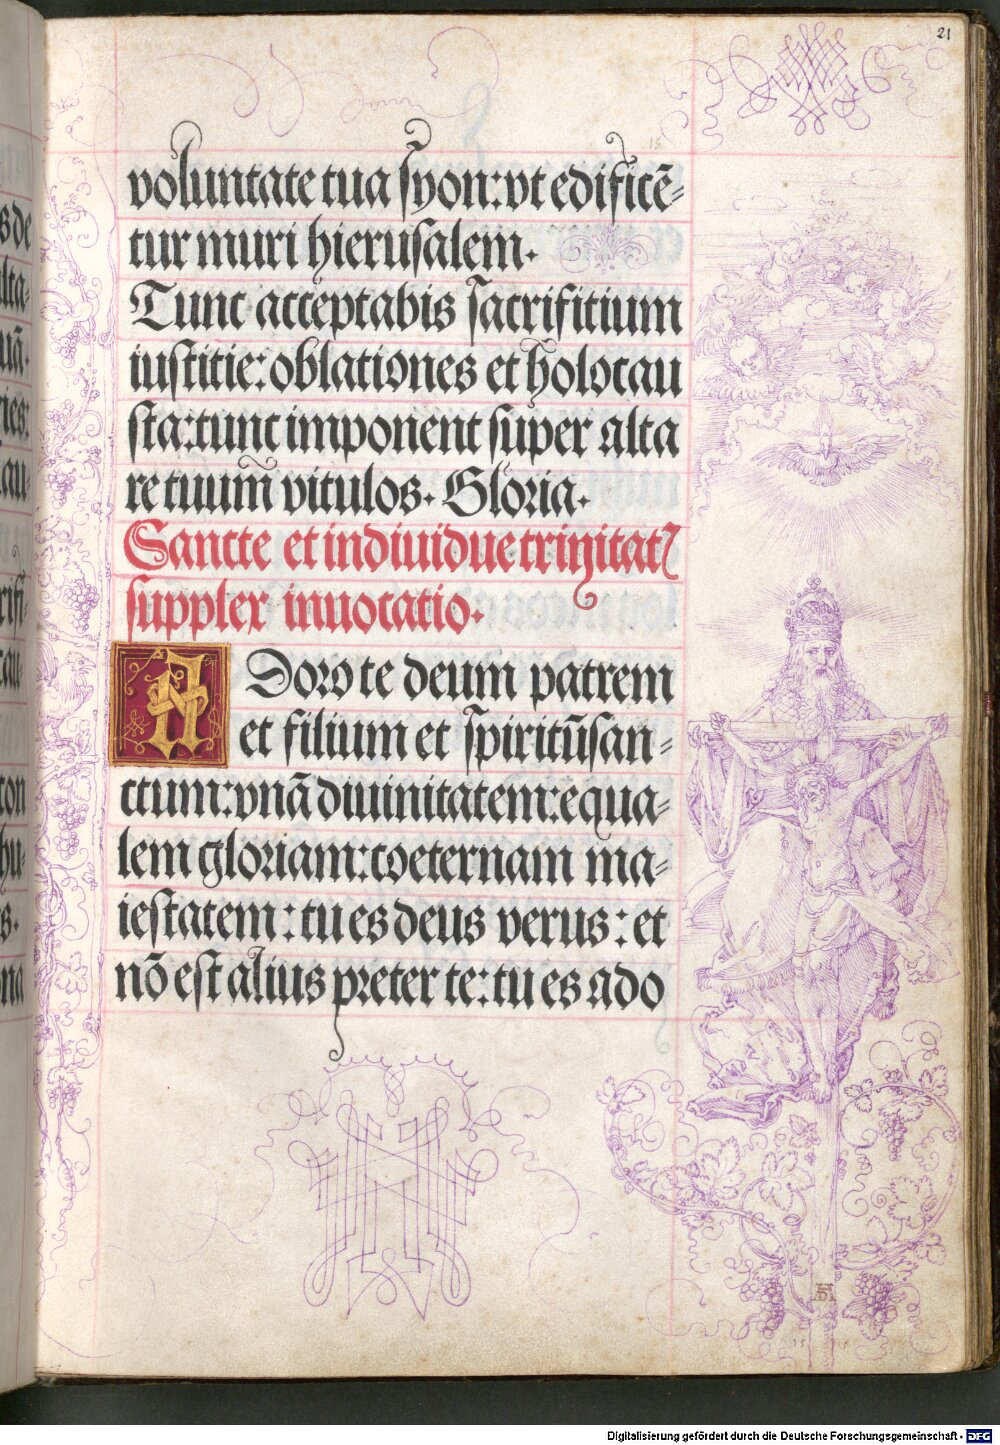 21
15
voluntate tua syon: vt edificē-
tur muri hierusalem.
Tunc acceptabis sacrifitium
iustitie: oblationes et holocau
sta: tunc imponent super alta
re tuum vitulos. Gloria.
Sancte et indiuidue trinitatꝭ
supplex inuocatio.
Adoro te deum patrem
et filium et spiritūsan-
ctum: vnā diuinitatem: equa-
lem gloriam: coeternam ma-
iestatem: tu es deus verus: et
nō est alius preter te: tu es ado
AD
Digitalisierung gefördert durch die Deutsche Forschungsgemeinschaft - DFG